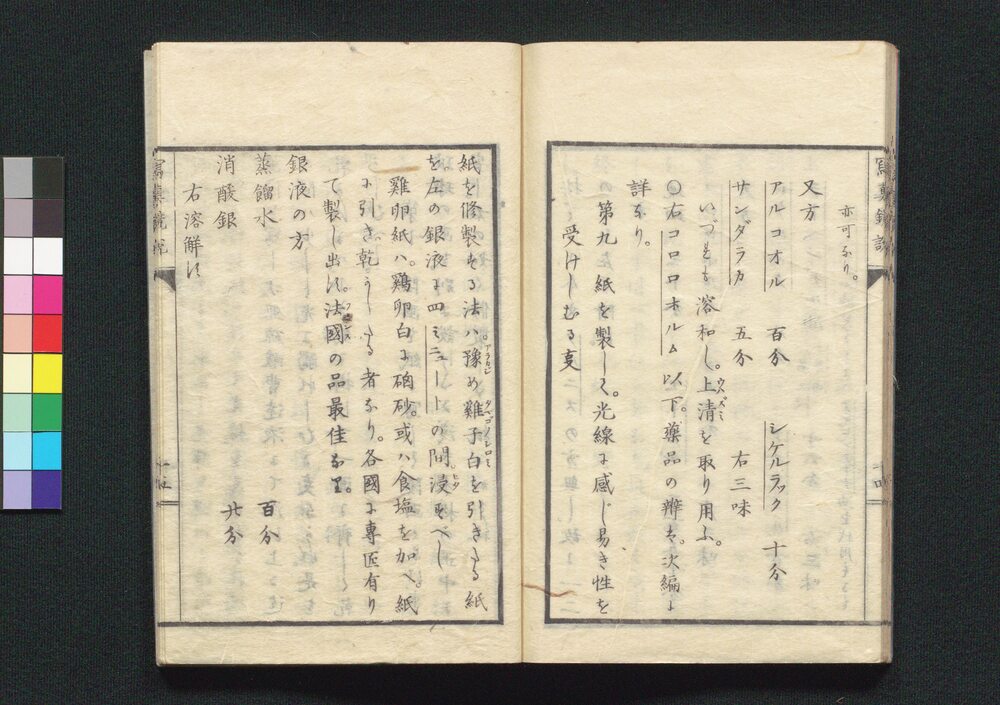 寫真鏡説
亦可なり。
又方
アルコオル 百分 シケルラック 十分
サンダラカ 五分 右三味
いづれも溶和し。上清ウハズミを取り用ふ。
〇右コロロホルム以下。藥品の辨は。次編に
詳なり。
第九 紙を製して。光線に感じ易き性を
受けしむる事
紙を修製する法ハ。豫アラカジめ雞子白タマゴノシロミを引きたる紙
を。左の銀液に四ミニュートの間。浸ヒタすべし
雞卵紙ハ。鷄卵白に硇砂。或ハ食塩を加へ紙
に引き。乾かしたる者なり。各國に専匠有り
て製し出す。法國フランスの品最佳なり。
銀液の方
蒸餾水 百分
消酸銀 廿分
右溶解す。
寫真鏡説